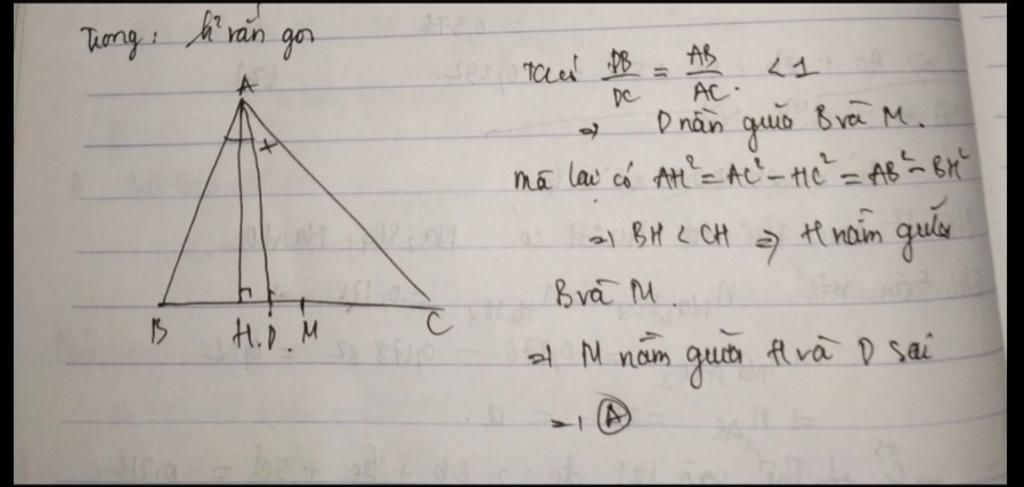 Trong: h² rắn gọi
A
B H. D. M C
Ta có DB/DC = AB/AC. < 1
⇒ D nằm giữa B và M.
mà lại có AH² = AC² - HC² = AB² - BH²
⇒ BH < CH ⇒ H nằm giữa
B và M
⇒ M nằm giữa H và D sai
⇒ A